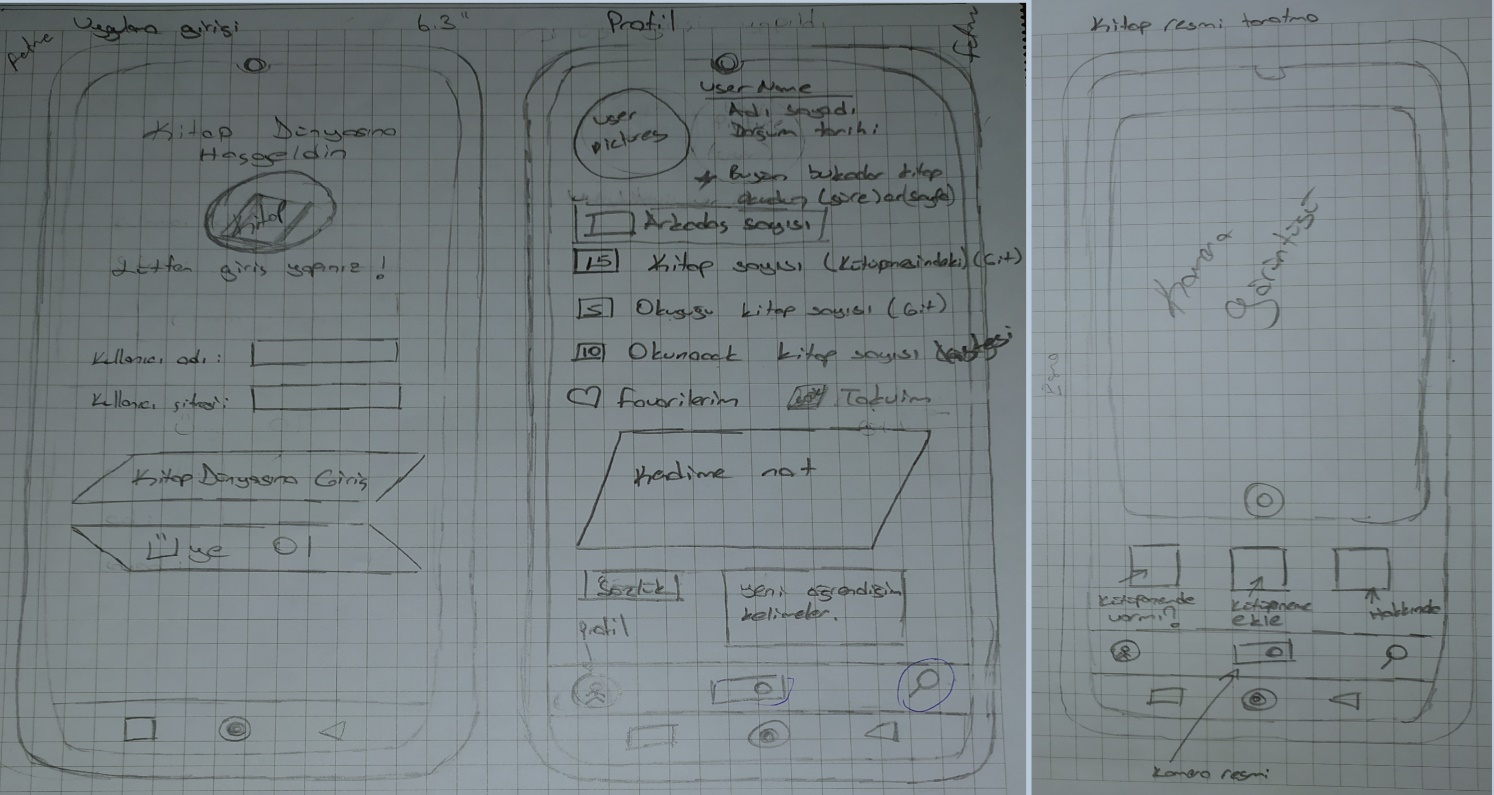 Uygulama girişi
6.3"
Kitap Dünyasına
Hoşgeldin
Kitap
Lütfen giriş yapınız!
Kullanıcı adı:
Kullanıcı şifresi:
Kitap Dünyasına Giriş
Üye Ol
Profil
User Name
User
pictures
Adı soyadı
Doğum tarihi
Bugün bukadar kitap
okudun (süre) or (sayfa)
Arkadaş sayısı
15 Kitap sayısı (Kütüphanesindeki) (Git)
5 Okuduğu kitap sayısı (Git)
10 Okunacak kitap sayısı
Favorilerim
Takvim
Kendime not
Sözlük
yeni öğrendiğin
kelimeler.
Profil
Kitap resmi taratma
Kamera
Görüntüsü
Kütüphanende
varmı?
Kütüphanene
ekle
Hakkında
Kamera resmi